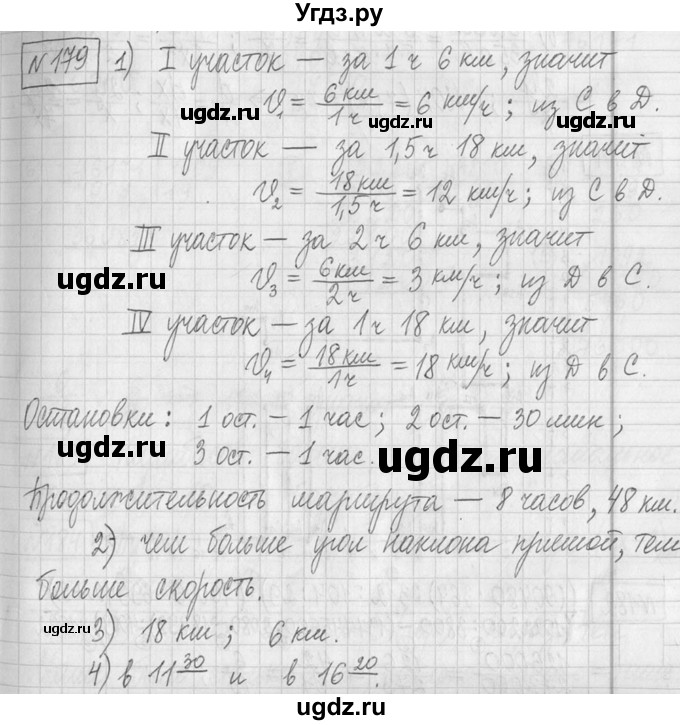 Угдз.ру
№179 1) I участок — за 1 ч 6 км, значит
V₁ = 6 км/1 ч = 6 км/ч; из С в D.
II участок — за 1,5 ч 18 км, значит
V₂ = 18 км/1,5 ч = 12 км/ч; из С в D.
III участок — за 2 ч 6 км, значит
V₃ = 6 км/2 ч = 3 км/ч; из D в С.
IV участок — за 1 ч 18 км, значит
V₄ = 18 км/1 ч = 18 км/ч; из D в С.
Остановки: 1 ост. — 1 час; 2 ост. — 30 мин;
3 ост. — 1 час.
Продолжительность маршрута — 8 часов, 48 км.
2) чем больше угол наклона прямой, тем
больше скорость.
3) 18 км; 6 км.
4) в 11 30 и в 16 20.
ugdz.ru
ugdz.ru
ugdz.ru
ugdz.ru
ugdz.ru
ugdz.ru
ugdz.ru
ugdz.ru
ugdz.ru
ugdz.ru
ugdz.ru
ugdz.ru
ugdz.ru